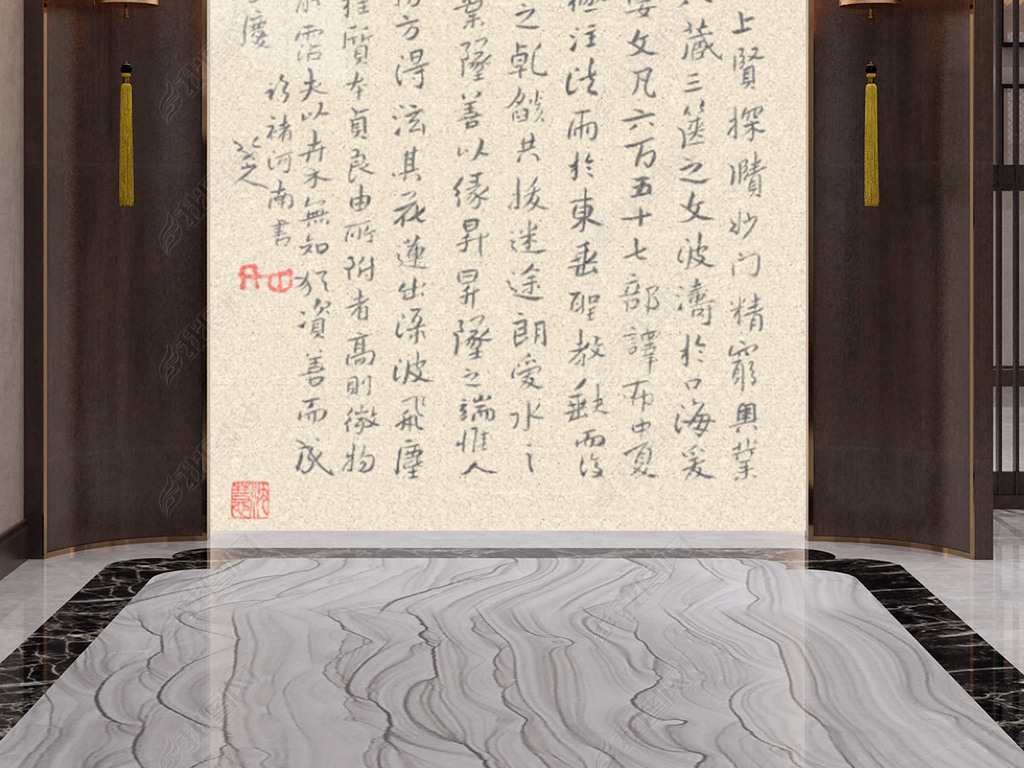 上賢探賾妙门精窮奥業
藏三篋之文波濤於口海爰
要文凡六百五十七部譯布中夏
注法雨於東垂聖教缺而復
之乾燄共拔迷途朗愛水之
業墜善以緣昇昇墜之端惟人
方得泫其花蓮出渌波飛塵
桂質本貞良由所附者高則微物
霑夫以卉木無知猶資善而成
慶
臨褚河南書